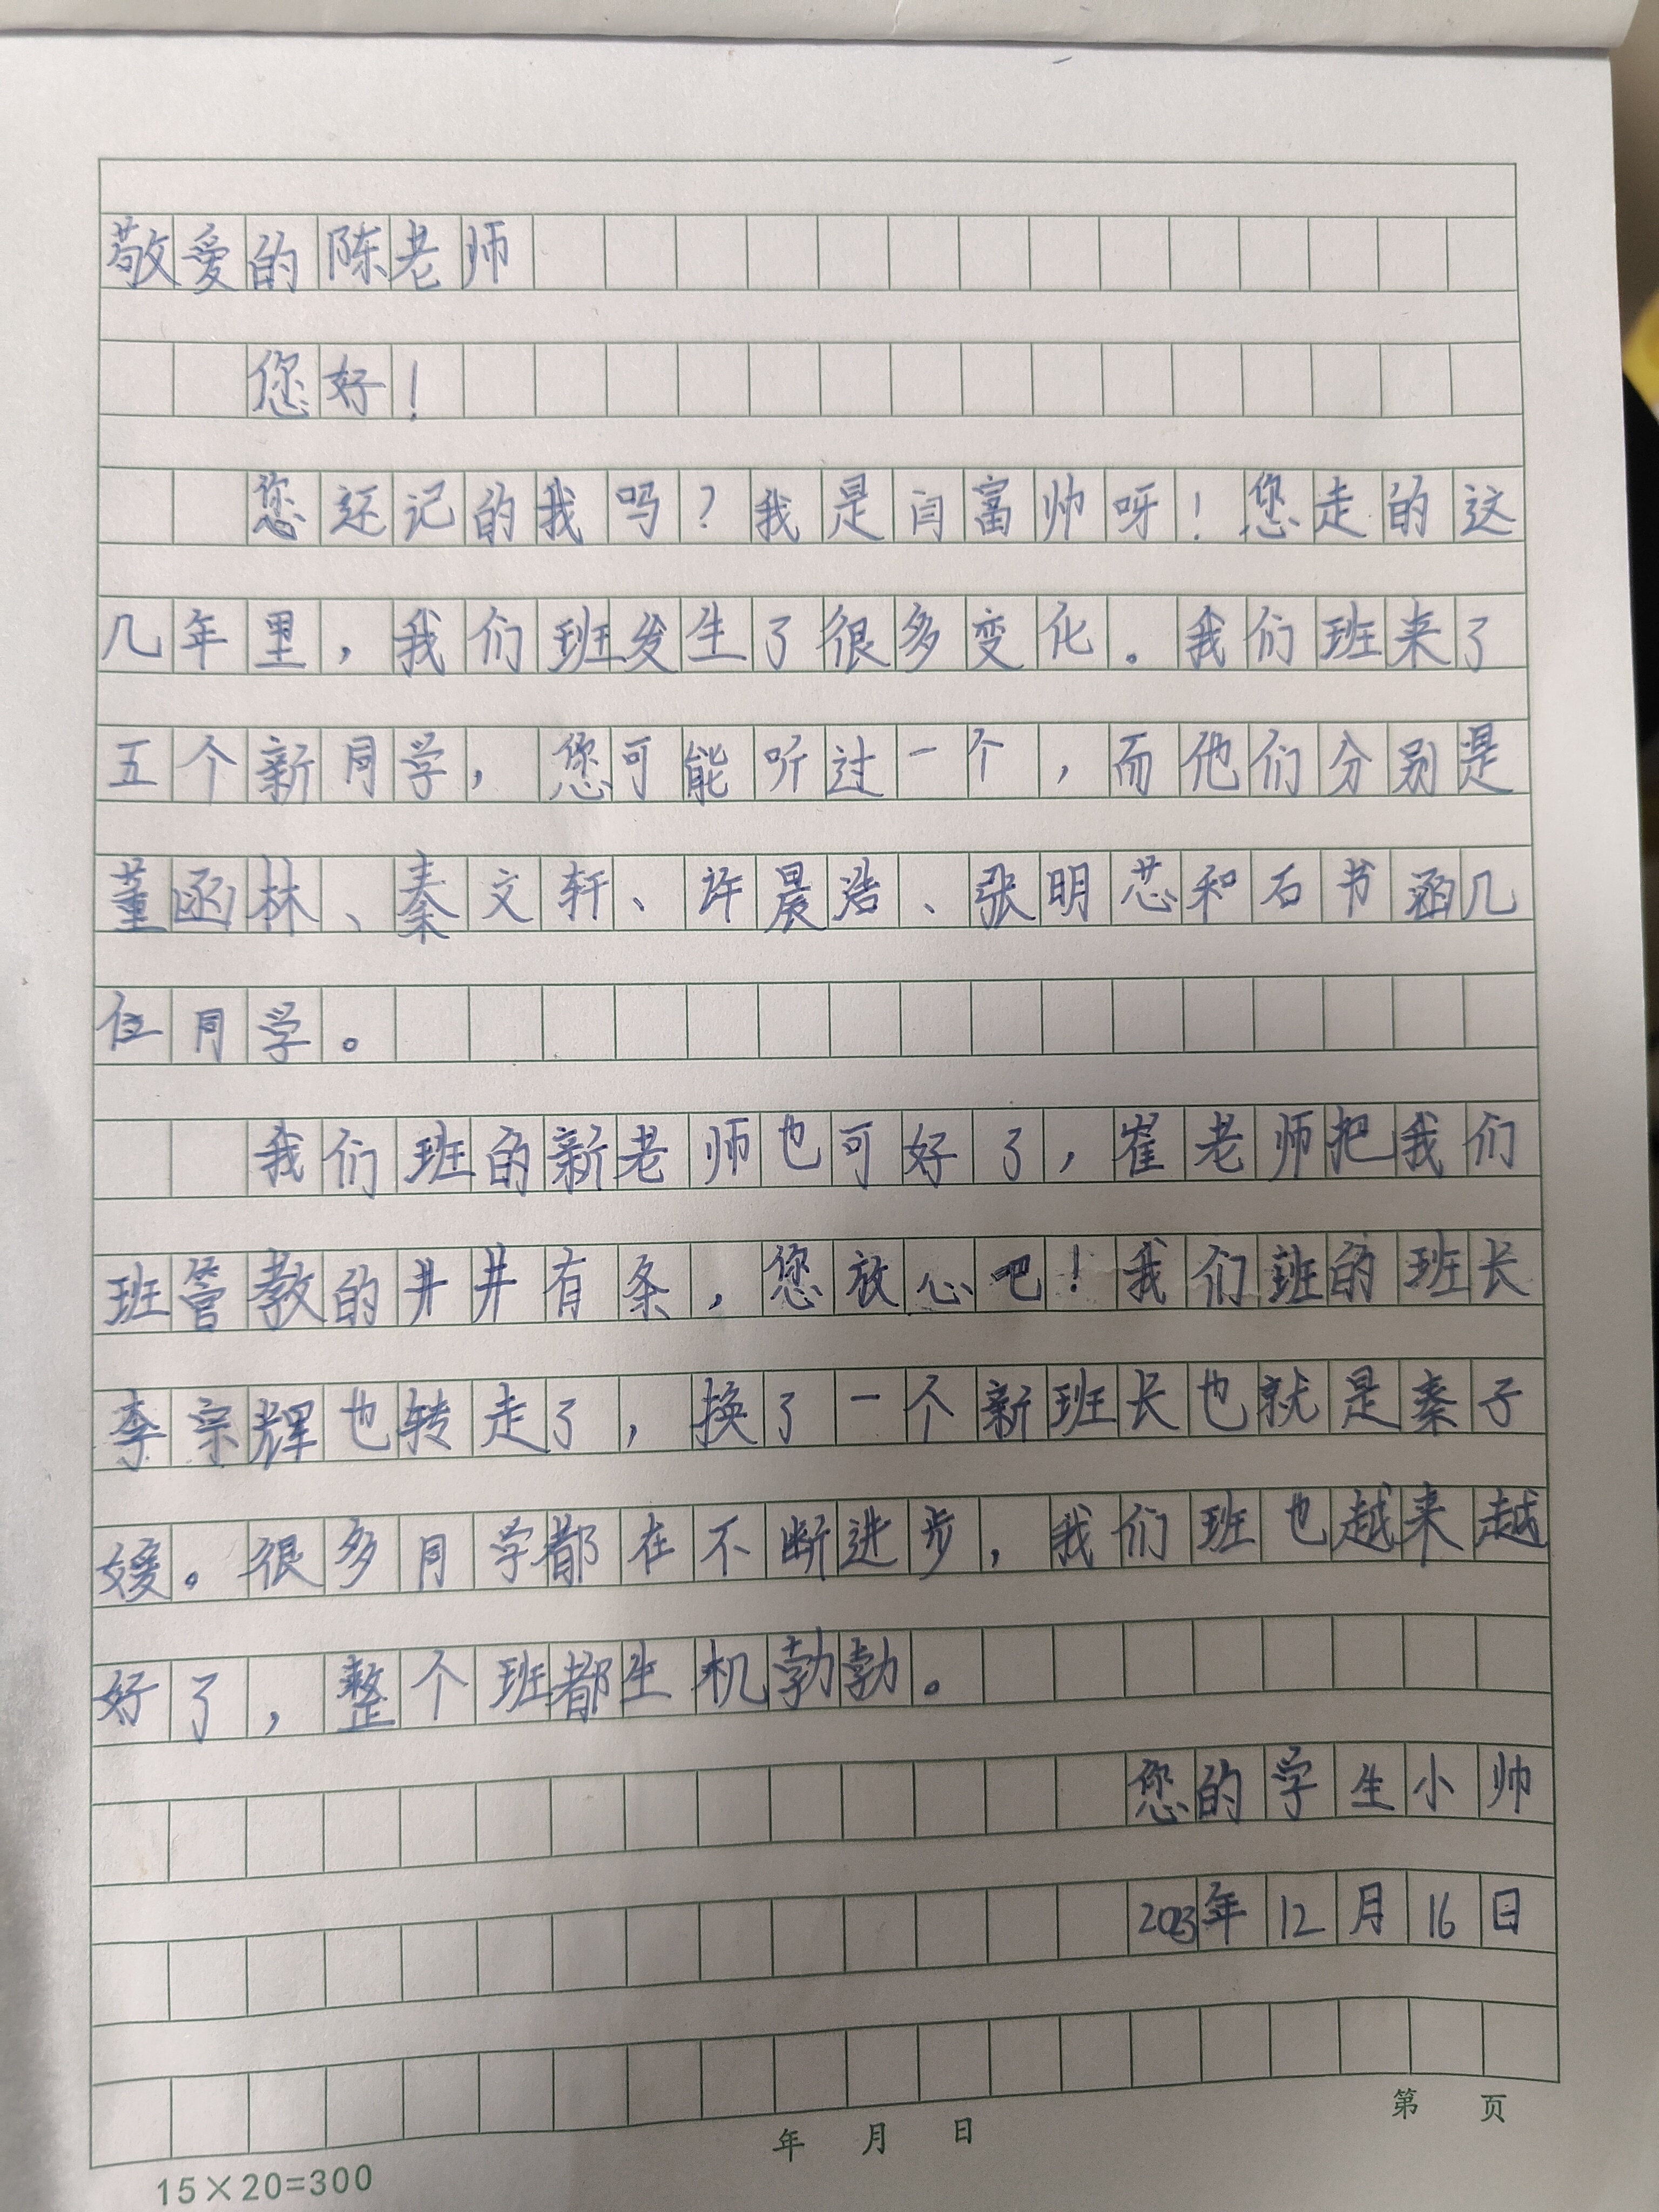 敬爱的陈老师
您好！
您还记的我吗？我是闫富帅呀！您走的这
几年里，我们班发生了很多变化。我们班来了
五个新同学，您可能听过一个，而他们分别是
董函林、秦文轩、许晨浩、张明芯和石书涵几
位同学。
我们班的新老师也可好了，崔老师把我们
班管教的井井有条，您放心吧！我们班的班长
李宗辉也转走了，换了一个新班长也就是秦子
媛。很多同学都在不断进步，我们班也越来越
好了，整个班都生机勃勃。
您的学生小帅
2023年12月16日
第 页
年 月 日
15×20=300